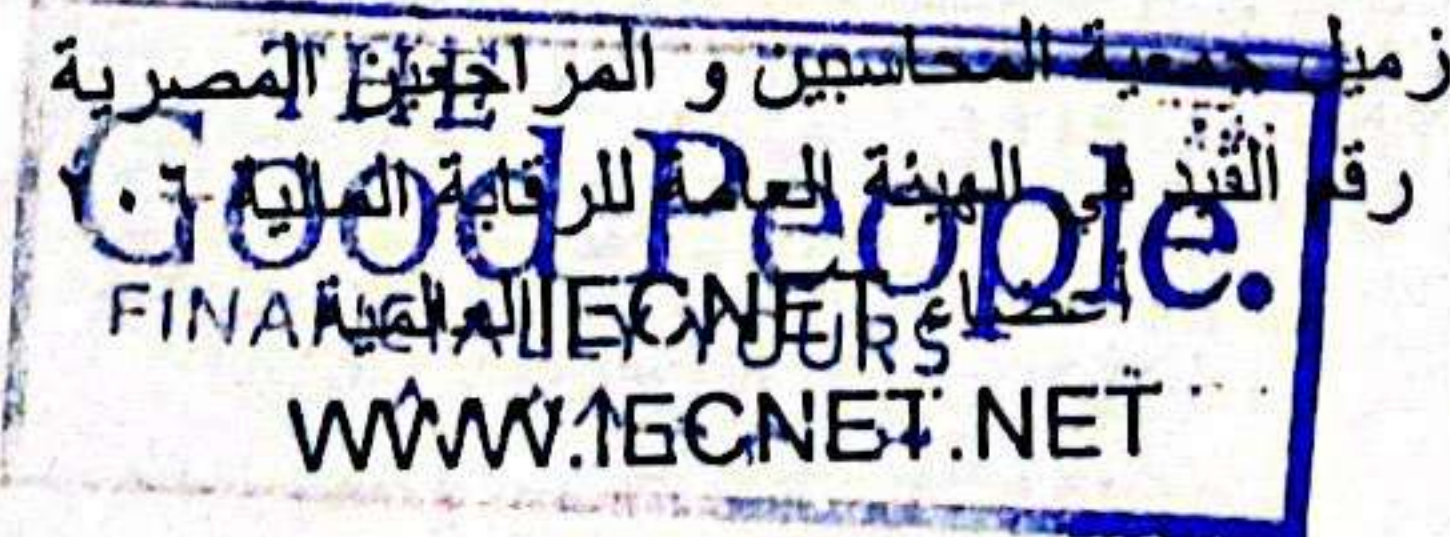 زميل جمعية المحاسبين و المراجعين المصرية
THE
رقم القيد في الهيئة العامة للرقابة المالية ٢٠٦
Good People.
أعضاء IECNET العالمية
FINANCIALLY YOURS
WWW.IECNET.NET